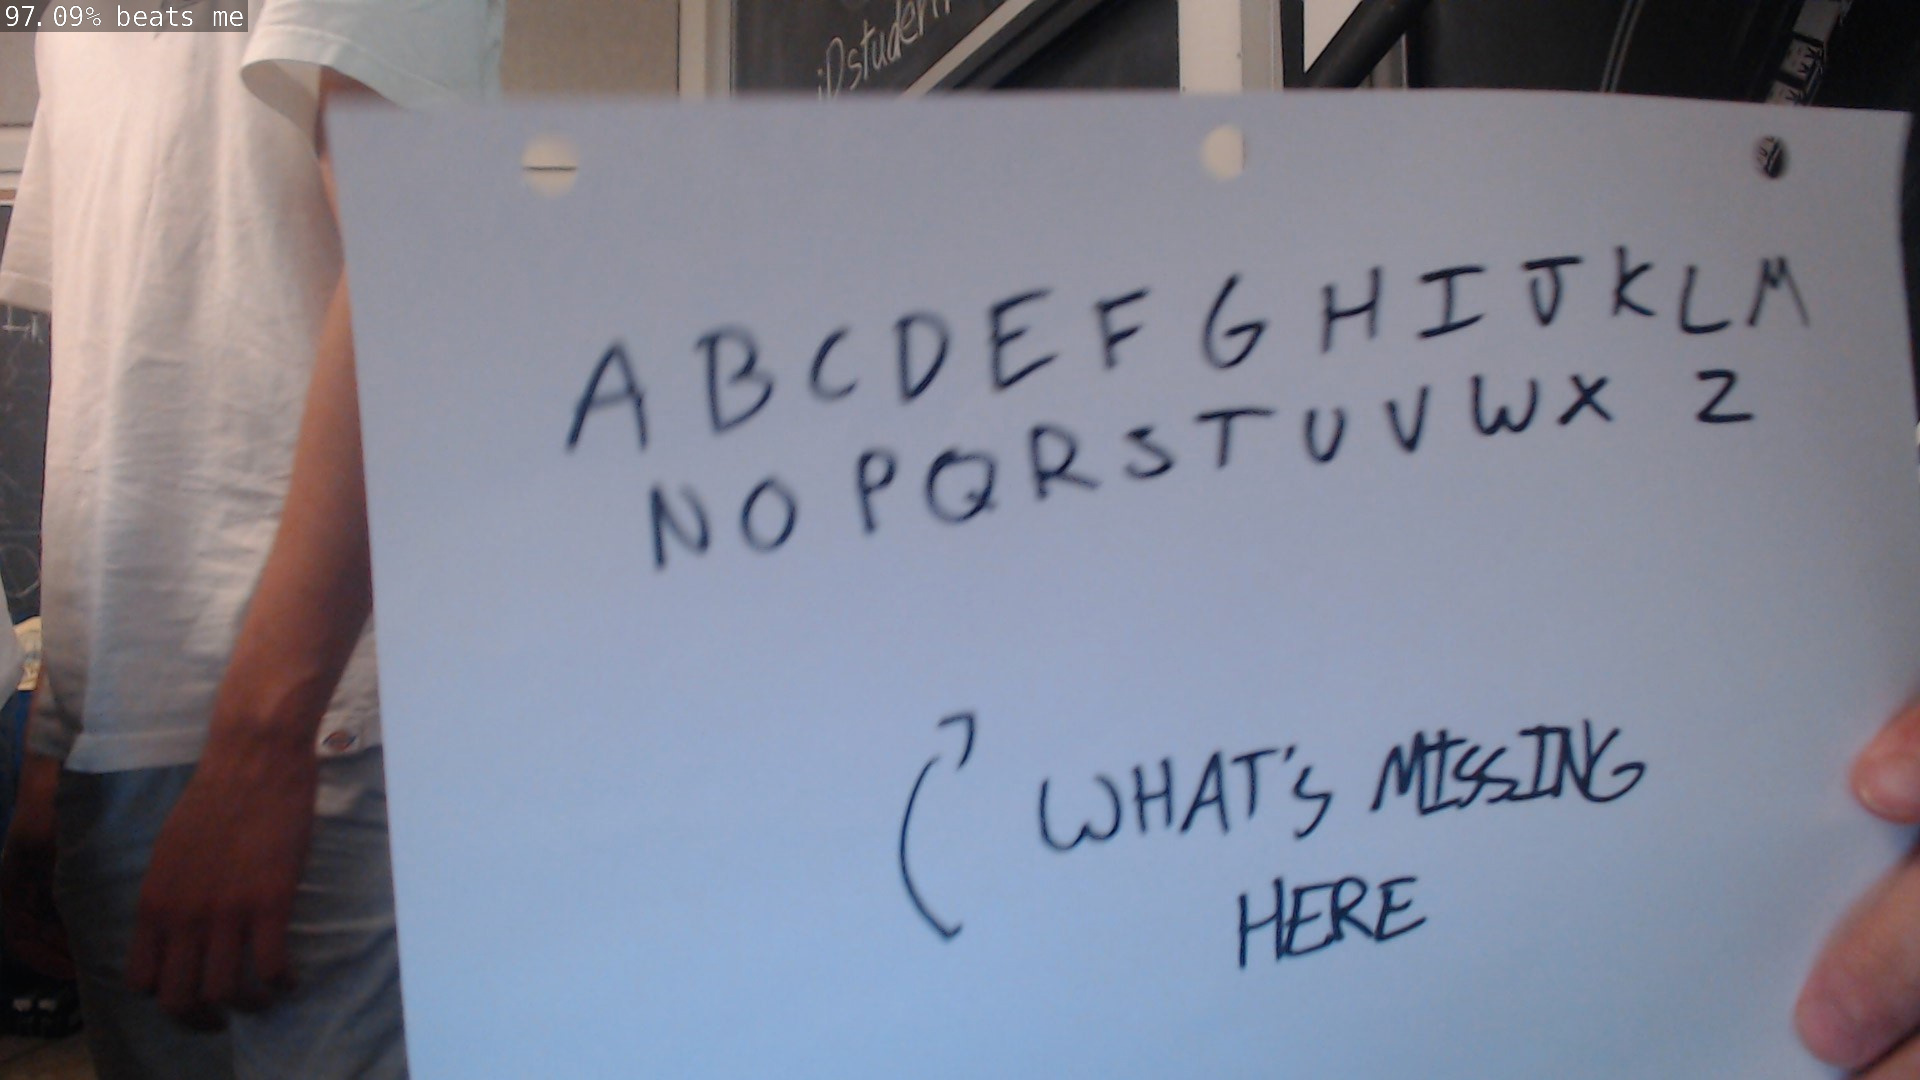 97.09% beats me
iDstudent
A B C D E F G H I J K L M
N O P Q R S T U V W X Z
WHAT'S MISSING
HERE